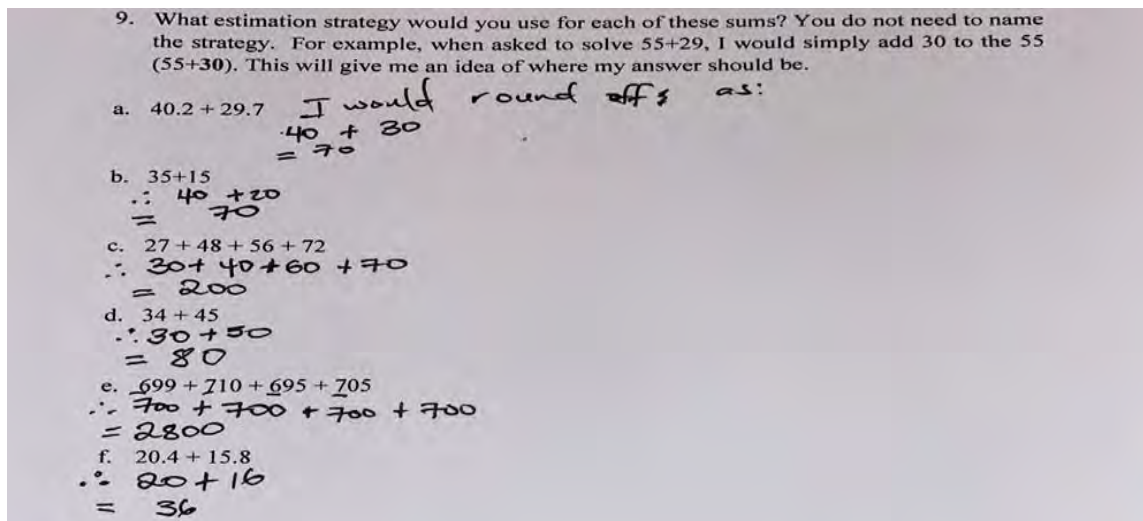 9. What estimation strategy would you use for each of these sums? You do not need to name
the strategy. For example, when asked to solve 55+29, I would simply add 30 to the 55
(55+30). This will give me an idea of where my answer should be.
a. 40.2 + 29.7 I would round off as:
40 + 30
= 70
b. 35+15
∴ 40 +20
= 70
c. 27 + 48 + 56 + 72
∴ 30+ 40+60 +70
= 200
d. 34 + 45
∴ 30 + 50
= 80
e. 699 + 710 + 695 + 705
∴ 700 + 700 + 700 + 700
= 2800
f. 20.4 + 15.8
∴ 20 + 16
= 36